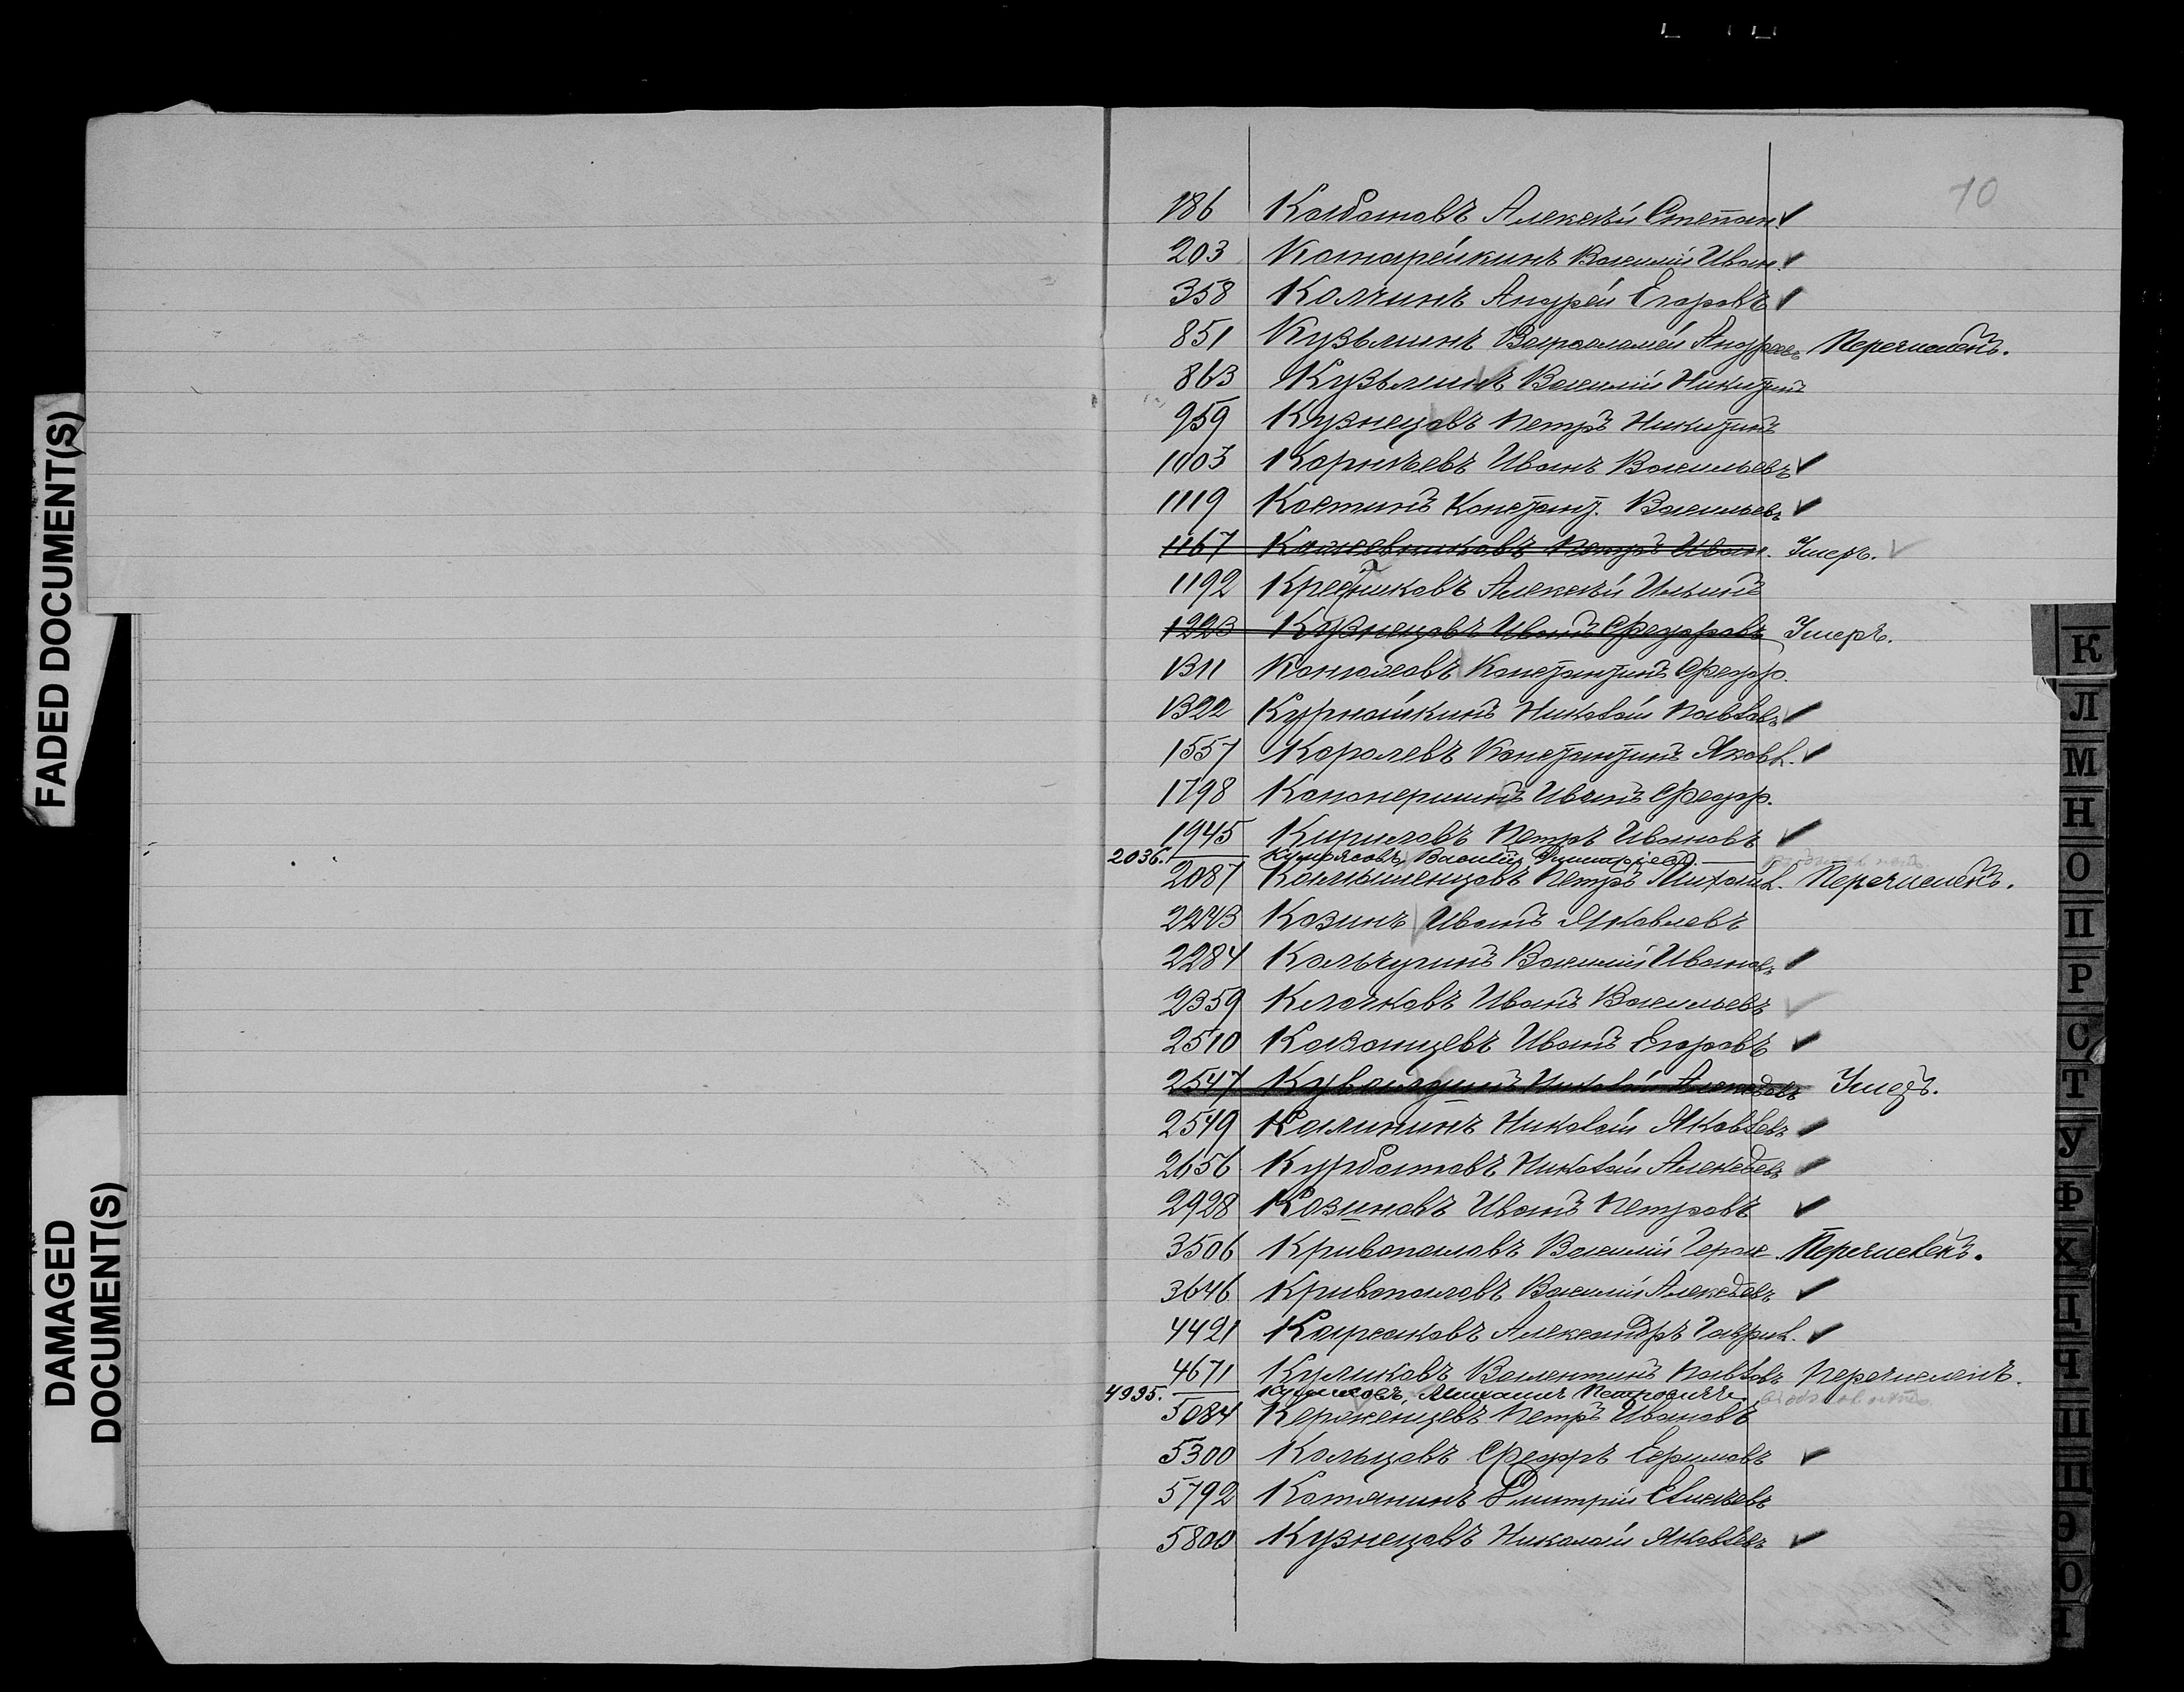 FADED DOCUMENT(S)
DAMAGED
DOCUMENT(S)
10
186 Колбановъ Алексѣй Степан. ✓
203 Канарейкинъ Василій Иван. ✓
358 Колчинъ Андрей Егоровъ ✓
851 Кузьминъ Варѳоломей Андреевъ Перечисленъ.
863 Кузьминъ Василій Никитинъ
959 Кузнецовъ Петръ Никитинъ
1003 Корнѣевъ Иванъ Васильевъ ✓
1119 Костинъ Констант. Васильевъ ✓
1167 Кожевниковъ Петръ Иван. Умеръ. ✓
1192 Алексѣй Ильинъ
1223 Кузнецовъ Иванъ Ѳедоровъ Умеръ.
1311 Коноваловъ Константинъ Ѳедор.
1322 Курнайкинъ Николай Павловъ ✓
1557 Королевъ Константинъ Яковл. ✓
1798 Иванъ Ѳедор.
1945 Кириловъ Петръ Ивановъ ✓
2036. Василій Димитріевъ.
2087 Камышенцовъ Петръ Михайл. Перечисленъ.
2243 Козинъ Иванъ Яковлевъ
2284 Кольчугинъ Василій Ивановъ ✓
2359 Клочковъ Иванъ Васильевъ ✓
2510 Казанцевъ Иванъ Егоровъ ✓
2547 Кувалдинъ Николай Умеръ.
2549 Калининъ Николай Яковлевъ ✓
2656 Курбатовъ Николай Алексѣевъ ✓
2928 Козиновъ Иванъ Петровъ ✓
3506 Кривопаловъ Василій Герас. Перечисленъ.
3646 Кривопаловъ Василій Алексѣевъ ✓
4421 Карсаковъ Александръ Гаврил. ✓
4671 Куликовъ Валентинъ Павловъ Перечисленъ.
4995. Михаилъ Петровичъ.
5084 Керженцевъ Петръ Ивановъ
5300 Кольцовъ Ѳедоръ Ефимовъ ✓
5792 Котанинъ Дмитрій Елисѣевъ
5800 Кузнецовъ Николай Яковлевъ ✓
К
Л
М
Н
О
П
Р
С
Т
У
Ф
Х
Ц
Ч
Э